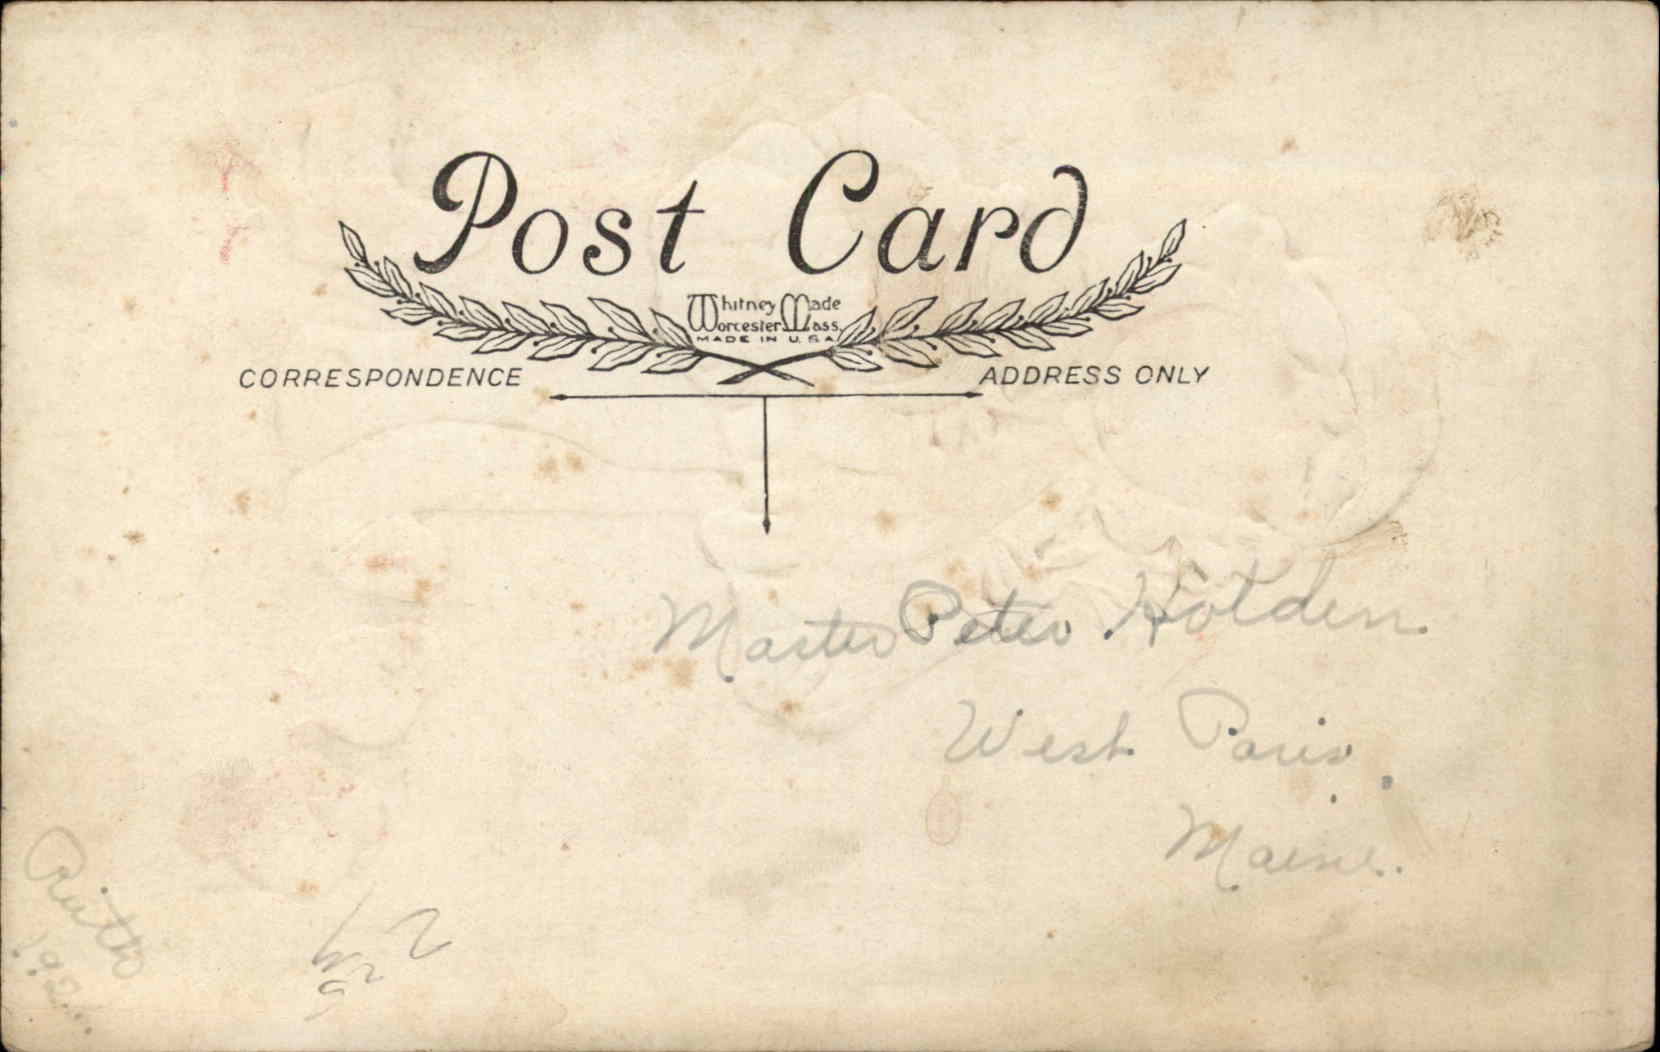 Post Card
Whitney Made
Worcester Mass.
MADE IN U.S.A.
CORRESPONDENCE
ADDRESS ONLY
Master Peter Holden.
West Paris.
Maine.
Ruth